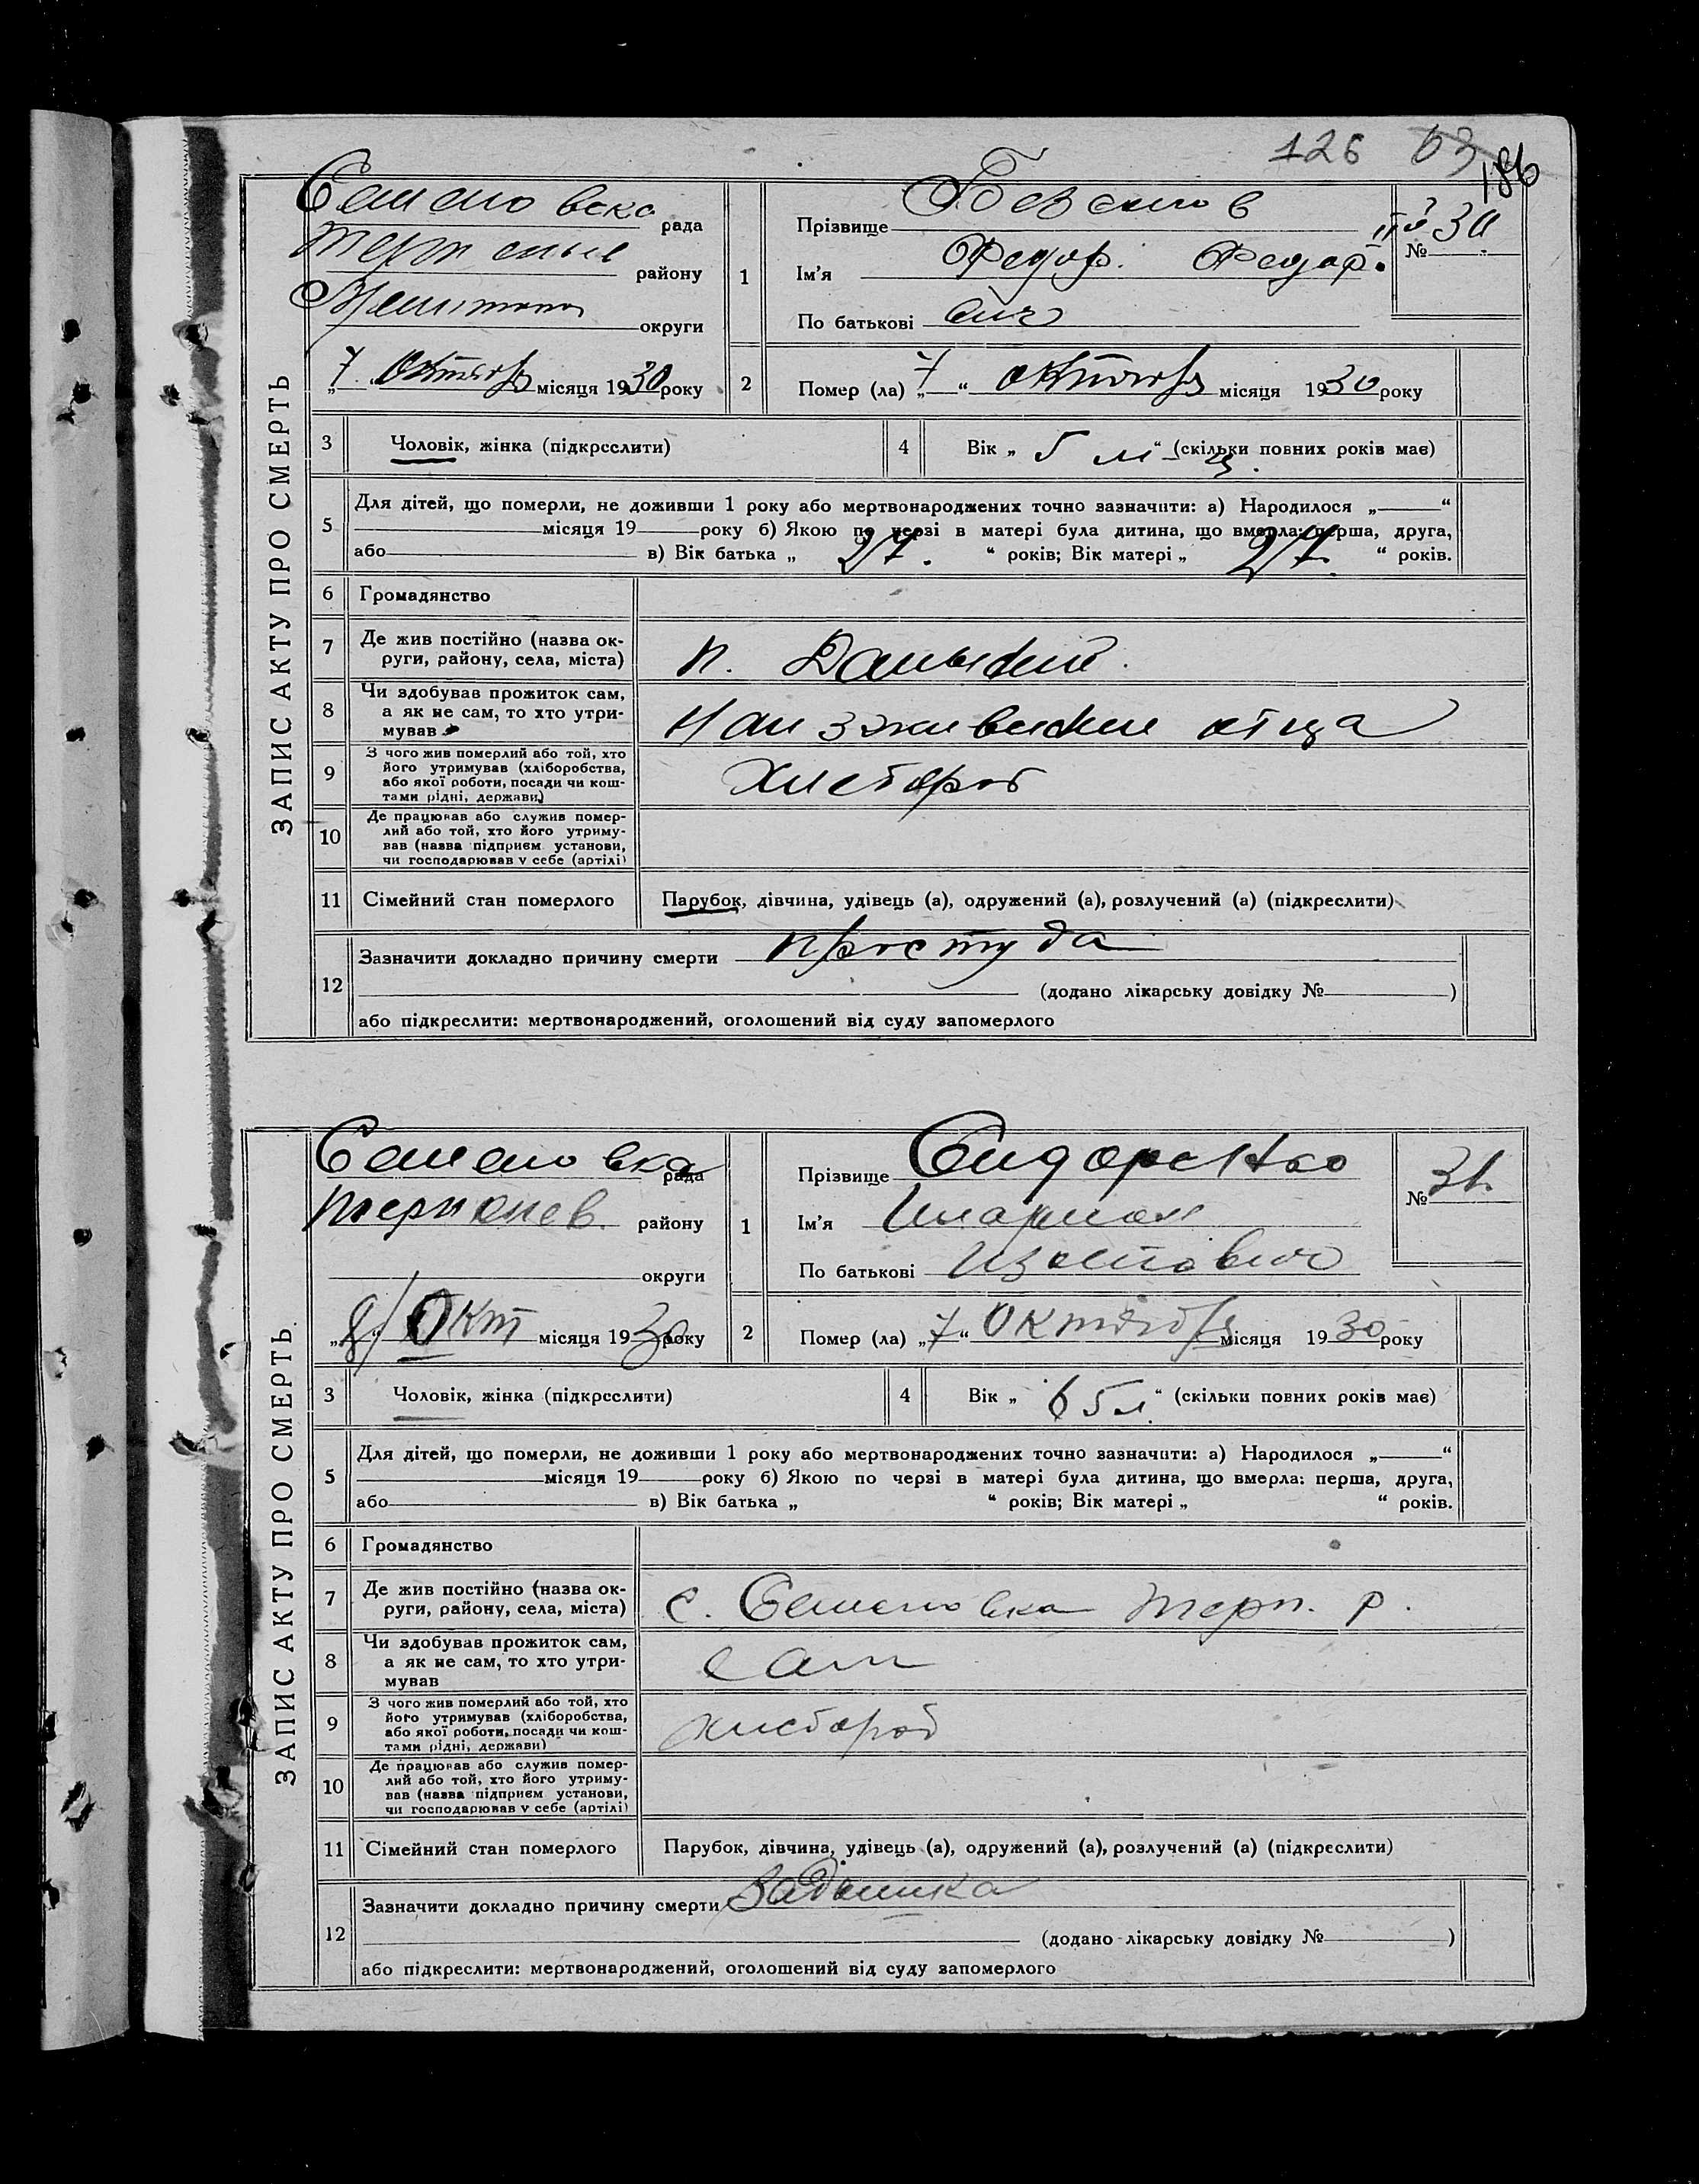 126 63 186
ЗАПИС АКТУ ПРО СМЕРТЬ
Семеновска рада
району
округи
„7 Октября місяця 1930 року
1
Прізвище
Ім'я Федор. Федор.
По батькові вич
№ 30
2
Помер (ла) „7“ октября місяця 1930 року
3 Чоловік, жінка (підкреслити)
4 Вік „5 м-ц“ (скільки повних років має)
5
Для дітей, що померли, не доживши 1 року або мертвонароджених точно зазначити: а) Народилося „ “
місяця 19 року б) Якою по черзі в матері була дитина, що вмерла: перша, друга,
або в) Вік батька „ 27. “ років; Вік матері „ 27. “ років.
6 Громадянство
7 Де жив постійно (назва ок-
руги, району, села, міста)
п.
8 Чи здобував прожиток сам,
а як не сам, то хто утри-
мував
На иждивении отца
9 З чого жив померлий або той, хто
його утримував (хліборобства,
або якої роботи, посади чи кош-
тами рідні, держави)
Хлебороб
10 Де працював або служив помер-
лий або той, хто його утриму-
вав (назва підприєм. установи,
чи господарював у себе (артілі)
11 Сімейний стан померлого
Парубок, дівчина, удівець (а), одружений (а), розлучений (а) (підкреслити)
12
Зазначити докладно причину смерти простуда
(додано лікарську довідку № )
або підкреслити: мертвонароджений, оголошений від суду запомерлого
ЗАПИС АКТУ ПРО СМЕРТЬ
Семеновка рада
району
округи
„8“ Окт місяця 1930 року
1
Прізвище Сидоренко
Ім'я
По батькові
№ 31.
2
Помер (ла) „7“ Октября місяця 1930 року
3 Чоловік, жінка (підкреслити)
4 Вік „65 л.“ (скільки повних років має)
5
Для дітей, що померли, не доживши 1 року або мертвонароджених точно зазначити: а) Народилося „ “
місяця 19 року б) Якою по черзі в матері була дитина, що вмерла: перша, друга,
або в) Вік батька „ “ років; Вік матері „ “ років.
6 Громадянство
7 Де жив постійно (назва ок-
руги, району, села, міста)
с. Семеновка Терп. р.
8 Чи здобував прожиток сам,
а як не сам, то хто утри-
мував
сам
9 З чого жив померлий або той, хто
його утримував (хліборобства,
або якої роботи, посади чи кош-
тами рідні, держави)
хлебороб
10 Де працював або служив помер-
лий або той, хто його утриму-
вав (назва підприєм. установи,
чи господарював у себе (артілі)
11 Сімейний стан померлого
Парубок, дівчина, удівець (а), одружений (а), розлучений (а) (підкреслити)
12
Зазначити докладно причину смерти
(додано лікарську довідку № )
або підкреслити: мертвонароджений, оголошений від суду запомерлого